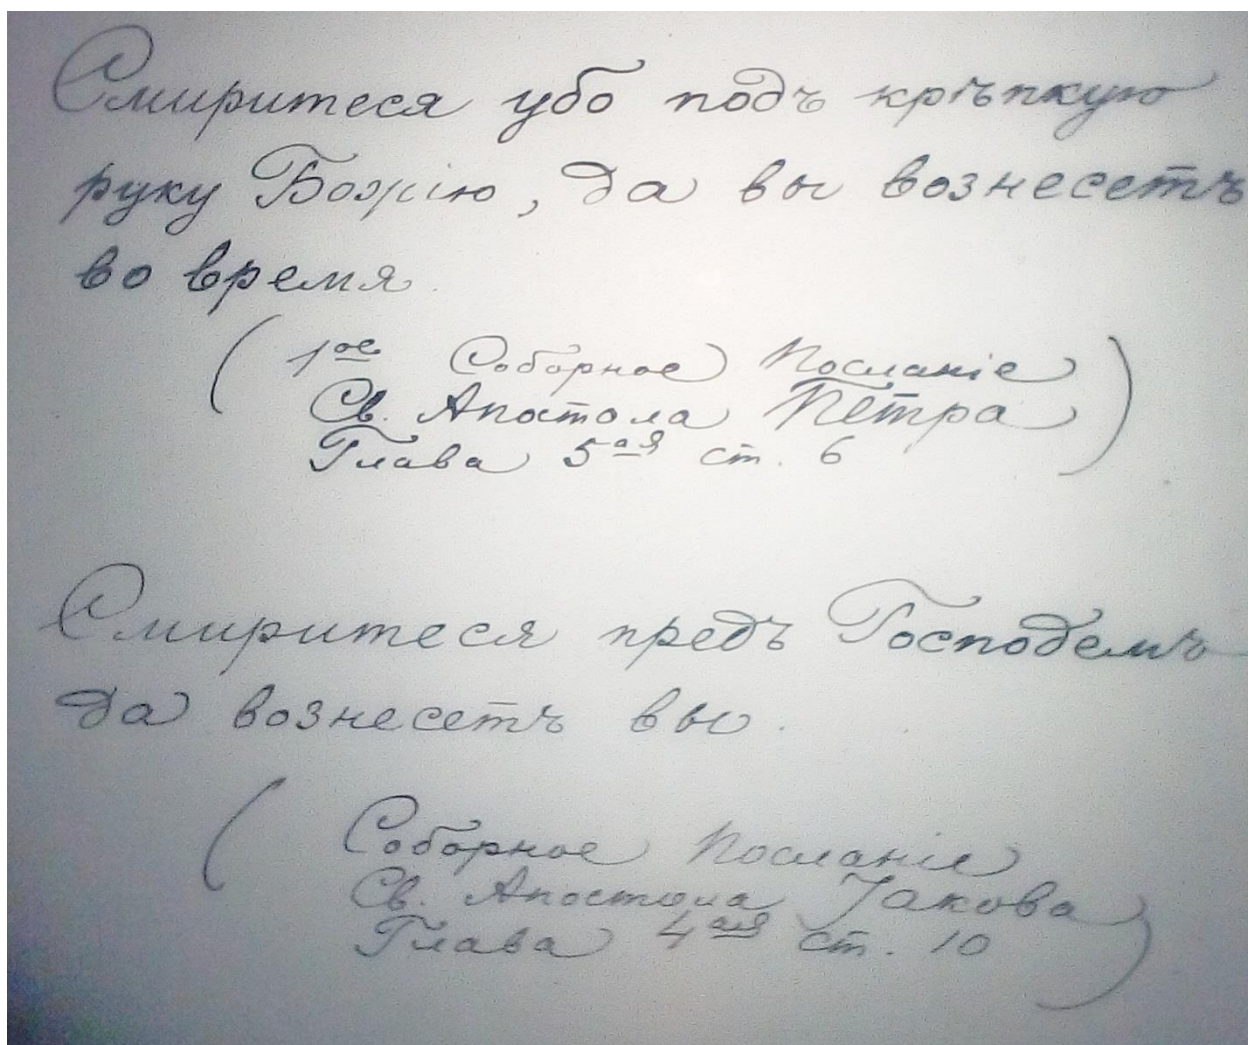 Смиритеся убо подъ крѣпкую
руку Божію, да вы вознесетъ
во время.
( 1ое Соборное Посланіе
Св. Апостола Петра )
Глава 5ая ст. 6
Смиритеся предъ Господемъ
да вознесетъ вы.
( Соборное Посланіе
Св. Апостола Іакова )
Глава 4ая ст. 10